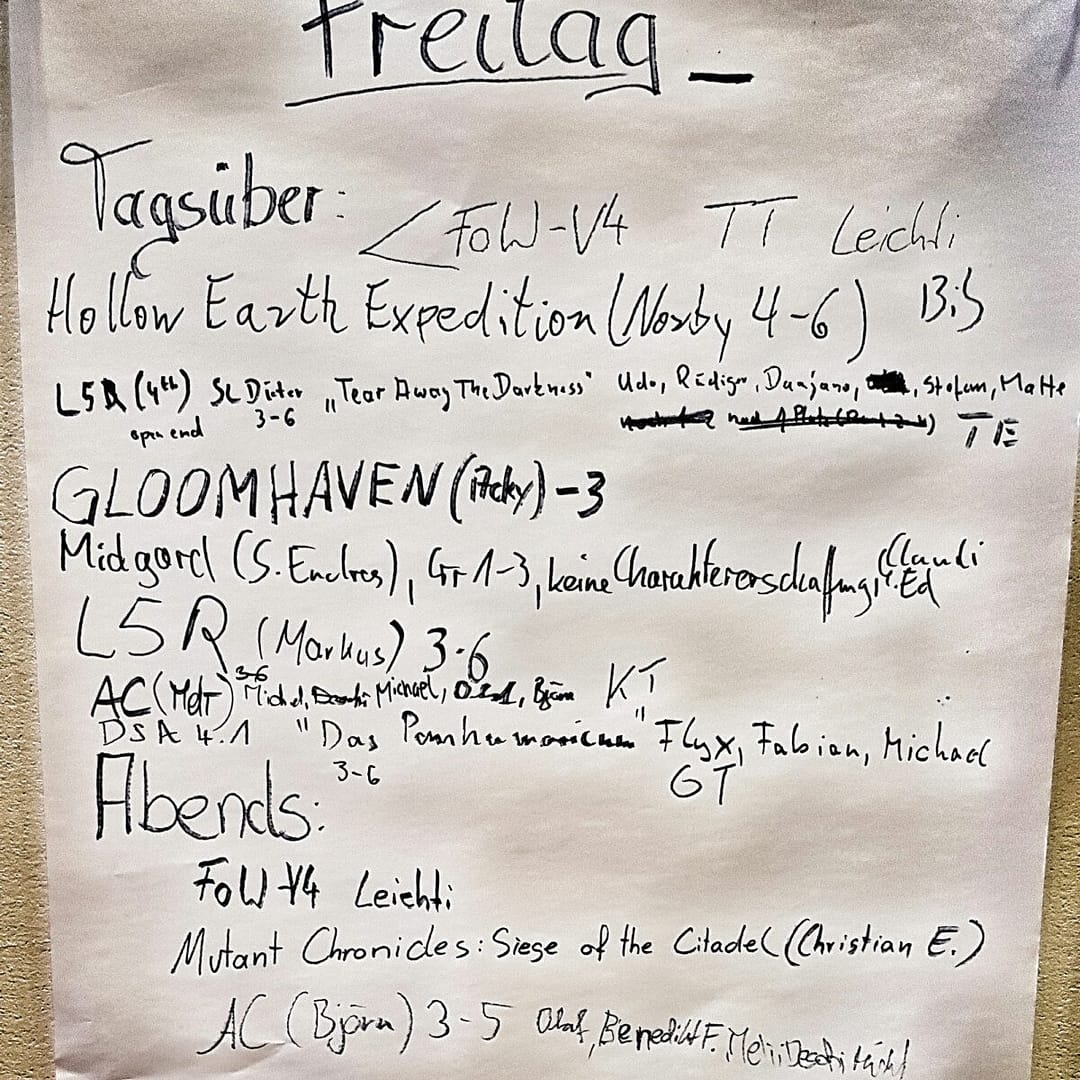 Freitag _
Tagsüber:
< FoW-V4 TT Leichti
Hollow Earth Expedition (Noxby 4-6) BiS
L5R (4th) SL Dieter „Tear Away The Darkness" Udo, Rüdiger, Damjano, Stefan, Matte
open end 3-6 TE
GLOOMHAVEN (Acky) -3
Midgard (S. Endres), Gr 1-3, keine Charaktererschaffung, Claudi
Ed
L5R (Markus) 3-6
3-6
AC (Mdr) Michel, Michael, Björn KT
DSA 4.1 "Das" Flyx, Fabian, Michael
3-6 GT
Abends:
FoW-V4 Leichti
Mutant Chronicles: Siege of the Citadel (Christian E.)
AC (Björn) 3-5 Olaf, Benedikt F.